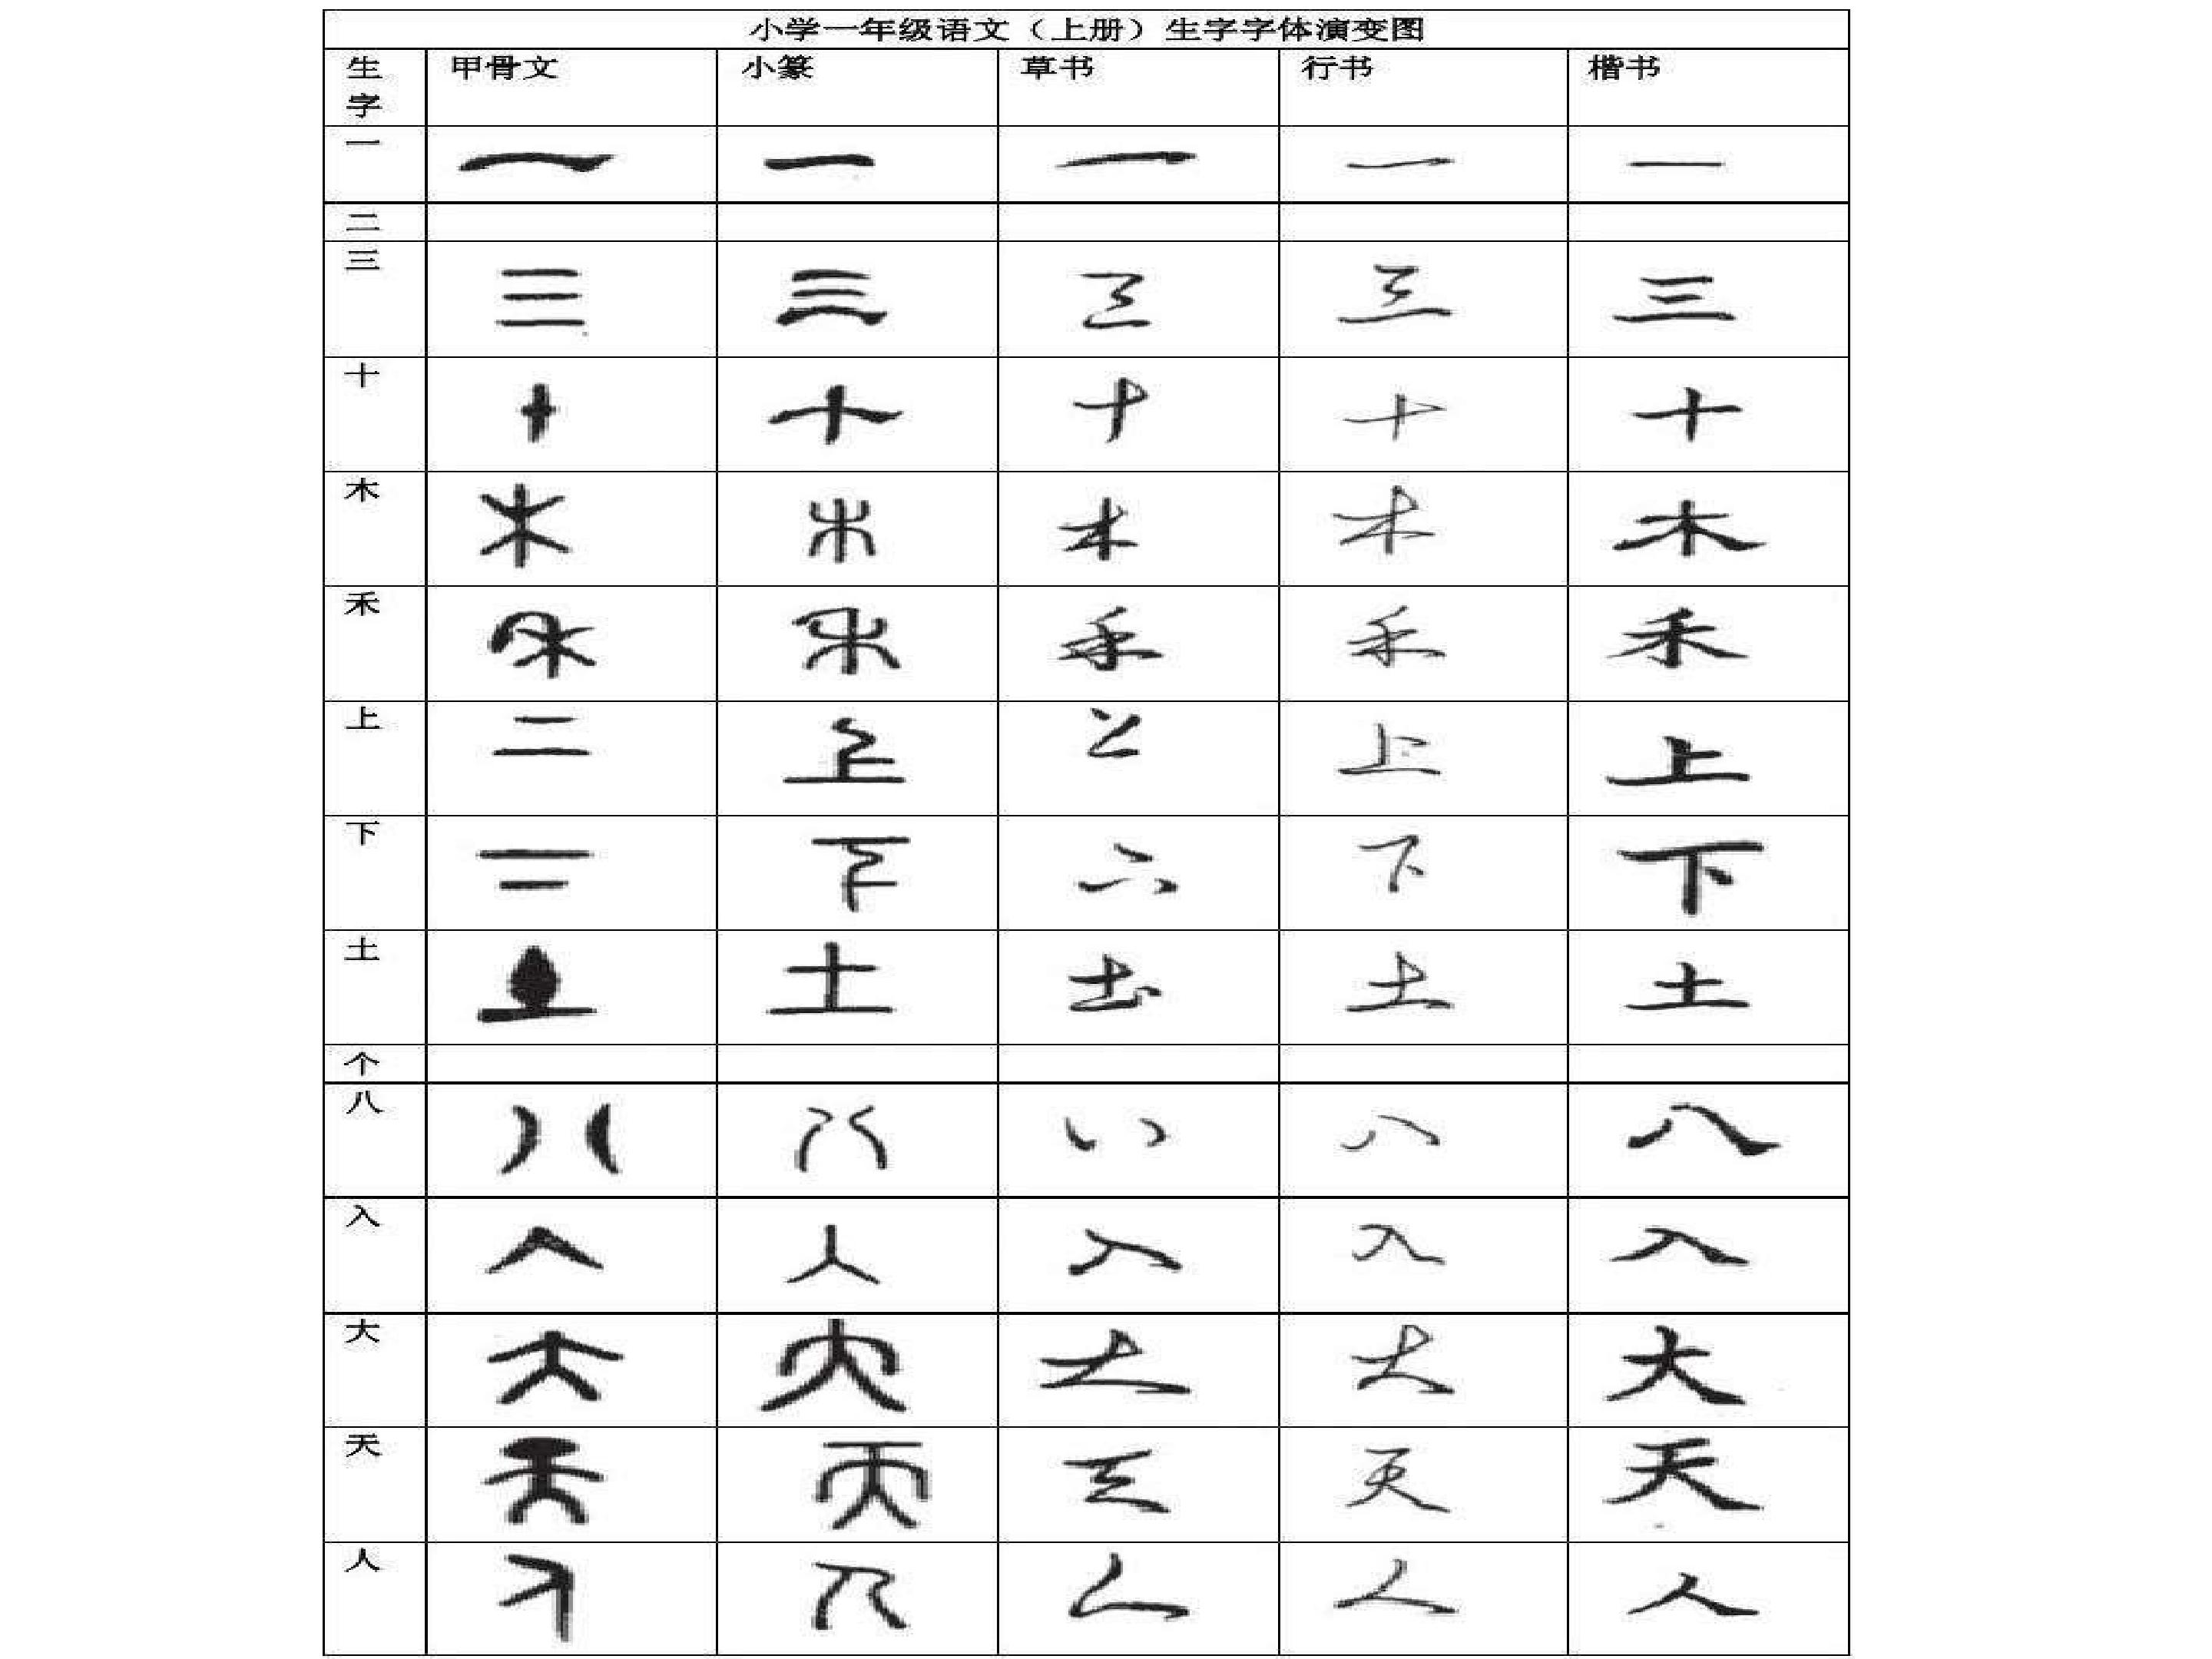 小学一年级语文（上册）生字字体演变图
生字 甲骨文 小篆 草书 行书 楷书
一 一 一 一 一 一
二
三 三 三 三 三 三
十 十 十 十 十 十
木 木 木 木 木 木
禾 禾 禾 禾 禾 禾
上 上 上 上 上 上
下 下 下 下 下 下
土 土 土 土 土 土
个
八 八 八 八 八 八
入 入 入 入 入 入
大 大 大 大 大 大
天 天 天 天 天 天
人 人 人 人 人 人